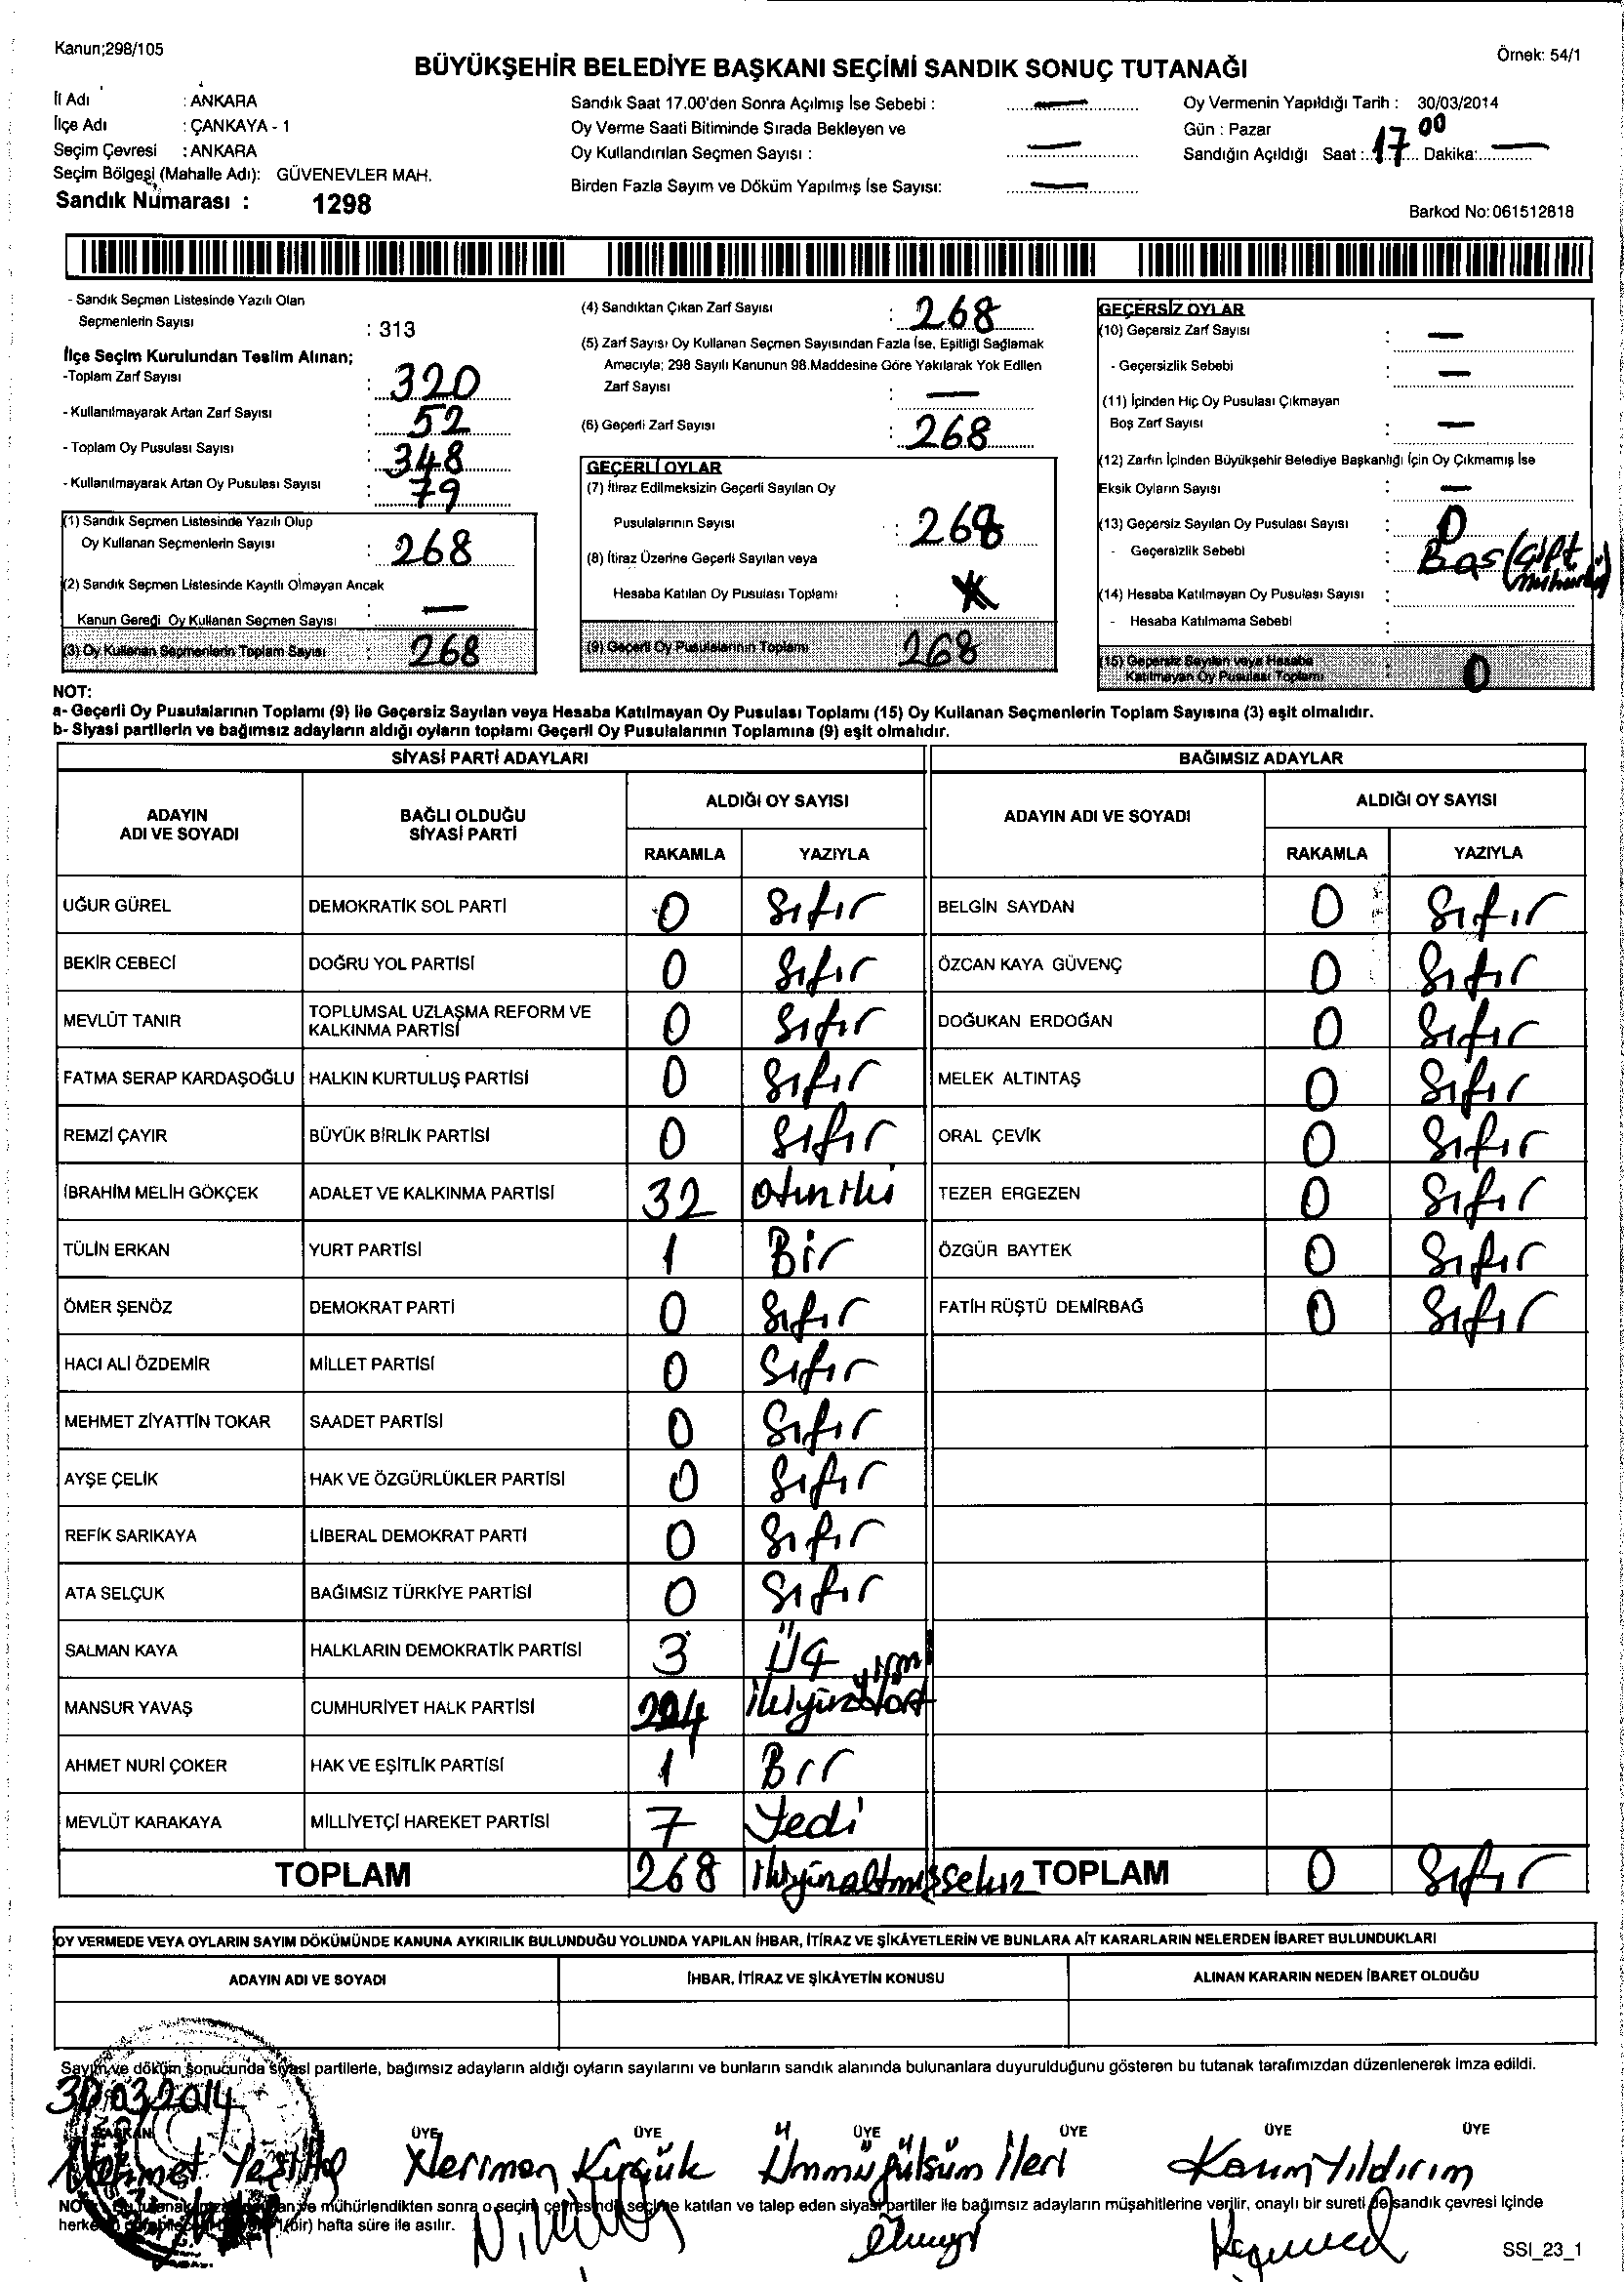 Kanun;298/105
Örnek: 54/1
BÜYÜKŞEHİR BELEDİYE BAŞKANI SEÇİMİ SANDIK SONUÇ TUTANAĞI
İl Adı : ANKARA
İlçe Adı : ÇANKAYA - 1
Seçim Çevresi : ANKARA
Seçim Bölgesi (Mahalle Adı): GÜVENEVLER MAH.
Sandık Numarası : 1298
Sandık Saat 17.00'den Sonra Açılmış İse Sebebi : —
Oy Verme Saati Bitiminde Sırada Bekleyen ve
Oy Kullandırılan Seçmen Sayısı : —
Birden Fazla Sayım ve Döküm Yapılmış İse Sayısı: —
Oy Vermenin Yapıldığı Tarih : 30/03/2014
Gün : Pazar
Sandığın Açıldığı Saat : 17 00 Dakika: —
Barkod No: 061512818
- Sandık Seçmen Listesinde Yazılı Olan
Seçmenlerin Sayısı : 313
İlçe Seçim Kurulundan Teslim Alınan;
-Toplam Zarf Sayısı : 320
- Kullanılmayarak Artan Zarf Sayısı : 52
- Toplam Oy Pusulası Sayısı : 348
- Kullanılmayarak Artan Oy Pusulası Sayısı : 79
(1) Sandık Seçmen Listesinde Yazılı Olup
Oy Kullanan Seçmenlerin Sayısı : 268
(2) Sandık Seçmen Listesinde Kayıtlı Olmayan Ancak
Kanun Gereği Oy Kullanan Seçmen Sayısı : —
(3) Oy Kullanan Seçmenlerin Toplam Sayısı : 268
(4) Sandıktan Çıkan Zarf Sayısı : 268
(5) Zarf Sayısı Oy Kullanan Seçmen Sayısından Fazla İse, Eşitliği Sağlamak
Amacıyla; 298 Sayılı Kanunun 98.Maddesine Göre Yakılarak Yok Edilen
Zarf Sayısı : —
(6) Geçerli Zarf Sayısı : 268
GEÇERLİ OYLAR
(7) İtiraz Edilmeksizin Geçerli Sayılan Oy
Pusulalarının Sayısı : 268
(8) İtiraz Üzerine Geçerli Sayılan veya
Hesaba Katılan Oy Pusulası Toplamı :
(9) Geçerli Oy Pusulalarının Toplamı 268
GEÇERSİZ OYLAR
(10) Geçersiz Zarf Sayısı : —
- Geçersizlik Sebebi : —
(11) İçinden Hiç Oy Pusulası Çıkmayan
Boş Zarf Sayısı : —
(12) Zarfın İçinden Büyükşehir Belediye Başkanlığı İçin Oy Çıkmamış İse
Eksik Oyların Sayısı : —
(13) Geçersiz Sayılan Oy Pusulası Sayısı : 0
- Geçersizlik Sebebi :
(14) Hesaba Katılmayan Oy Pusulası Sayısı :
- Hesaba Katılmama Sebebi :
(15) Geçersiz Sayılan veya Hesaba
Katılmayan Oy Pusulası Toplamı : 0
NOT:
a- Geçerli Oy Pusulalarının Toplamı (9) ile Geçersiz Sayılan veya Hesaba Katılmayan Oy Pusulası Toplamı (15) Oy Kullanan Seçmenlerin Toplam Sayısına (3) eşit olmalıdır.
b- Siyasi partilerin ve bağımsız adayların aldığı oyların toplamı Geçerli Oy Pusulalarının Toplamına (9) eşit olmalıdır.
SİYASİ PARTİ ADAYLARI BAĞIMSIZ ADAYLAR
ADAYIN ADI VE SOYADI BAĞLI OLDUĞU SİYASİ PARTİ ALDIĞI OY SAYISI ADAYIN ADI VE SOYADI ALDIĞI OY SAYISI
RAKAMLA YAZIYLA RAKAMLA YAZIYLA
UĞUR GÜREL DEMOKRATİK SOL PARTİ 0 Sıfır BELGİN SAYDAN 0 Sıfır
BEKİR CEBECİ DOĞRU YOL PARTİSİ 0 Sıfır ÖZCAN KAYA GÜVENÇ 0 Sıfır
MEVLÜT TANIR TOPLUMSAL UZLAŞMA REFORM VE KALKINMA PARTİSİ 0 Sıfır DOĞUKAN ERDOĞAN 0 Sıfır
FATMA SERAP KARDAŞOĞLU HALKIN KURTULUŞ PARTİSİ 0 Sıfır MELEK ALTINTAŞ 0 Sıfır
REMZİ ÇAYIR BÜYÜK BİRLİK PARTİSİ 0 Sıfır ORAL ÇEVİK 0 Sıfır
İBRAHİM MELİH GÖKÇEK ADALET VE KALKINMA PARTİSİ 32 Otuziki TEZER ERGEZEN 0 Sıfır
TÜLİN ERKAN YURT PARTİSİ 1 Bir ÖZGÜR BAYTEK 0 Sıfır
ÖMER ŞENÖZ DEMOKRAT PARTİ 0 Sıfır FATİH RÜŞTÜ DEMİRBAĞ 0 Sıfır
HACI ALİ ÖZDEMİR MİLLET PARTİSİ 0 Sıfır
MEHMET ZİYATTİN TOKAR SAADET PARTİSİ 0 Sıfır
AYŞE ÇELİK HAK VE ÖZGÜRLÜKLER PARTİSİ 0 Sıfır
REFİK SARIKAYA LİBERAL DEMOKRAT PARTİ 0 Sıfır
ATA SELÇUK BAĞIMSIZ TÜRKİYE PARTİSİ 0 Sıfır
SALMAN KAYA HALKLARIN DEMOKRATİK PARTİSİ 3 Üç
MANSUR YAVAŞ CUMHURİYET HALK PARTİSİ 224 ikiyüzyirmidört
AHMET NURİ ÇOKER HAK VE EŞİTLİK PARTİSİ 1 Bir
MEVLÜT KARAKAYA MİLLİYETÇİ HAREKET PARTİSİ 7 Yedi
TOPLAM 268 ikiyüzaltmışsekiz TOPLAM 0 Sıfır
OY VERMEDE VEYA OYLARIN SAYIM DÖKÜMÜNDE KANUNA AYKIRILIK BULUNDUĞU YOLUNDA YAPILAN İHBAR, İTİRAZ VE ŞİKÂYETLERİN VE BUNLARA AİT KARARLARIN NELERDEN İBARET BULUNDUKLARI
ADAYIN ADI VE SOYADI İHBAR, İTİRAZ VE ŞİKÂYETİN KONUSU ALINAN KARARIN NEDEN İBARET OLDUĞU
Sayım ve döküm sonucunda siyasi partilerle, bağımsız adayların aldığı oyların sayılarını ve bunların sandık alanında bulunanlara duyurulduğunu gösteren bu tutanak tarafımızdan düzenlenerek imza edildi.
30.03.2014
BAŞKAN ÜYE ÜYE ÜYE ÜYE ÜYE ÜYE
Mehmet Nerimen Küçük Ümmügülsüm İleri Kasım Yıldırım
mühürlendikten sonra o seçim çevresinde seçime katılan ve talep eden siyasi partiler ile bağımsız adayların müşahitlerine verilir, onaylı bir sureti de sandık çevresi içinde
hafta süre ile asılır.
SSI_23_1